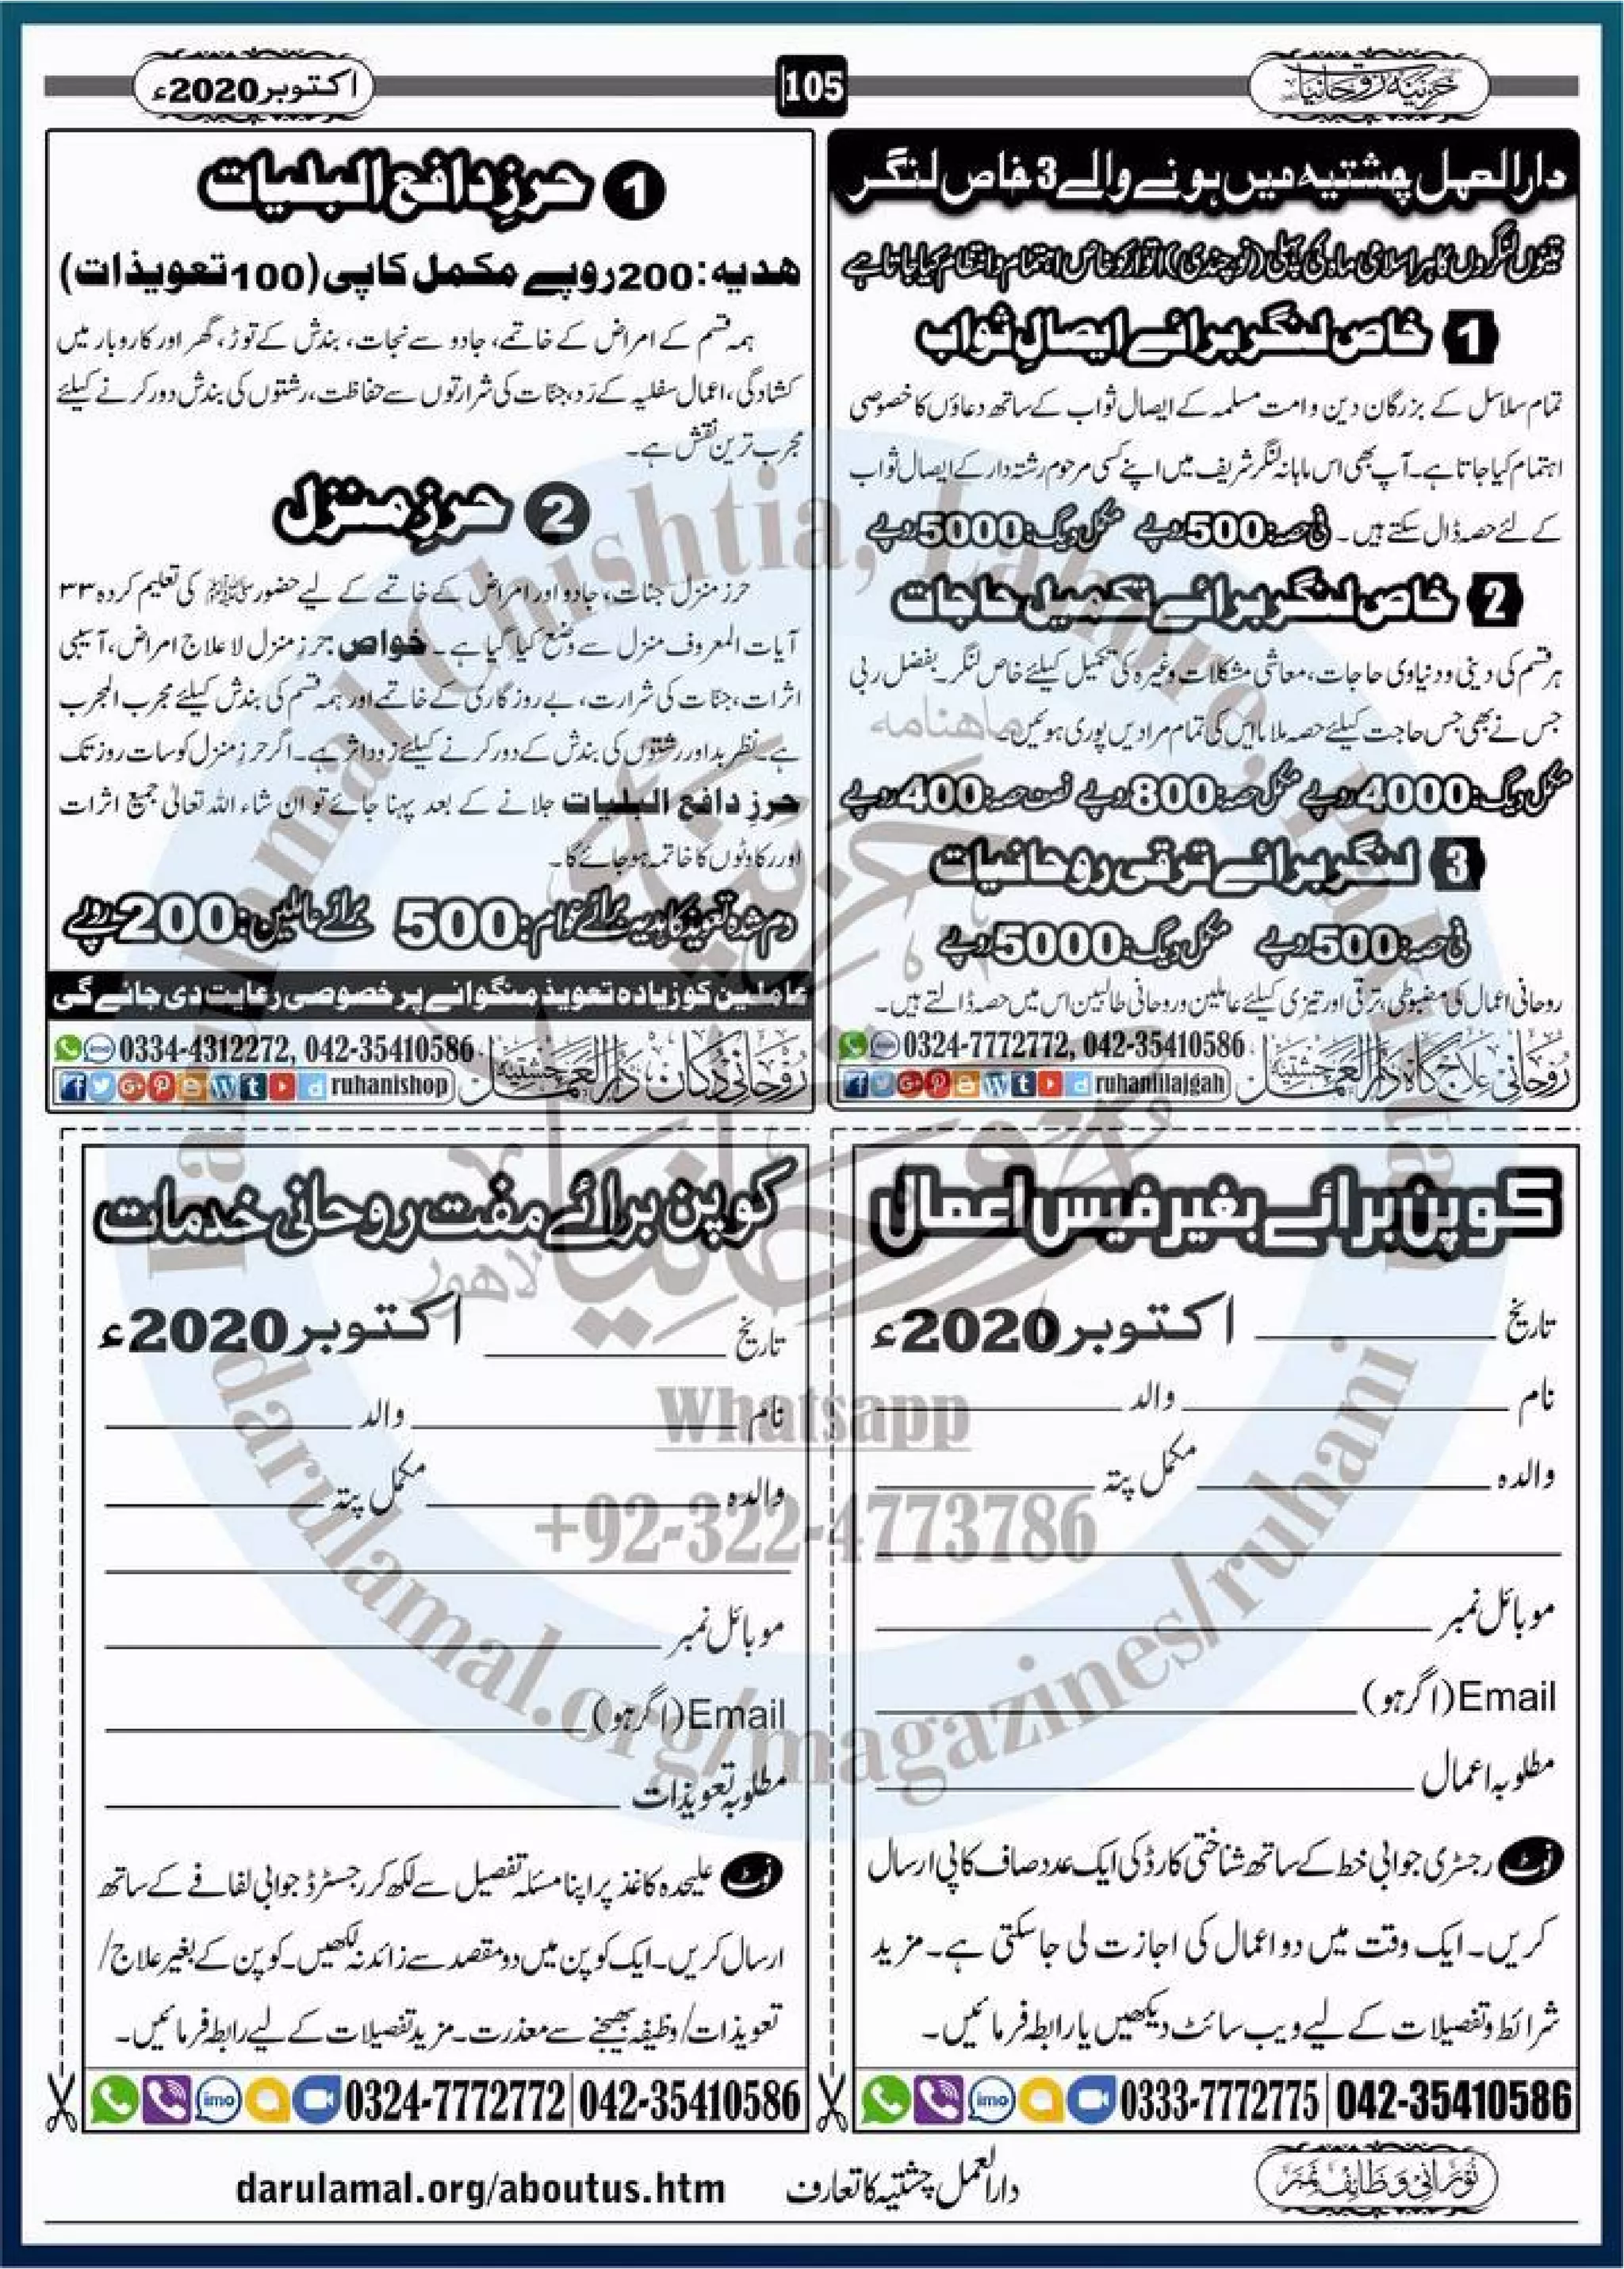 خزینۂ روحانیات
105
اکتوبر 2020ء
دارالعمل چشتیہ میں ہونے والے 3 خاص لنگر
تینوں لنگروں کا ہر اسلامی ماہ کی پہلی (نوچندی) اتوار کو خاص اہتمام و انتظام کیا جاتا ہے
1 خاص لنگر برائے ایصالِ ثواب
تمام سلاسل کے بزرگان دین و امت مسلمہ کے ایصال ثواب کے ساتھ دعاؤں کا خصوصی
اہتمام کیا جاتا ہے۔ آپ بھی اس ماہانہ لنگر شریف میں اپنے کسی مرحوم رشتہ دار کے ایصال ثواب
کے لئے حصہ ڈال سکتے ہیں۔ فی حصہ: 500 روپے مکمل دیگ: 5000 روپے
2 خاص لنگر برائے تکمیل حاجات
ہر قسم کی دینی و دنیاوی حاجات، معاشی مشکلات وغیرہ کی تکمیل کیلئے خاص لنگر۔ بفضل ربی
جس نے بھی جس حاجت کیلئے حصہ ملایا اس کی تمام مرادیں پوری ہوئیں۔
مکمل دیگ: 4000 روپے مکمل حصہ: 800 روپے نصف حصہ: 400 روپے
3 لنگر برائے ترقی روحانیات
فی حصہ: 500 روپے مکمل دیگ: 5000 روپے
روحانی اعمال کی مضبوطی، ترقی اور تیزی کیلئے عاملین و روحانی طالبین اس میں حصہ ڈالتے ہیں۔
روحانی علاج گاہ دارالعمل چشتیہ
0324-7772772, 042-35410586
ruhaniilajgah
1 حرزِ دافع البلیات
ھدیہ: 200 روپے مکمل کاپی (100 تعویذات)
ہمہ قسم کے امراض کے خاتمے، جادو سے نجات، بندش کے توڑ، گھر اور کاروبار میں
کشادگی، اعمال سفلیہ کے رَد، جنّات کی شرارتوں سے حفاظت، رشتوں کی بندش دور کرنے کیلئے
مجرب ترین نقش ہے۔
2 حرزِ منزل
حرز منزل جنات، جادو اور امراض کے خاتمے کے لیے حضور ﷺ کی تعلیم کردہ ۳۳
آیات المعروف منزل سے وضع کیا گیا ہے۔ خواص: حرز منزل لاعلاج امراض، آسیبی
اثرات، جنّات کی شرارت، بے روزگاری کے خاتمے اور ہمہ قسم کی بندش کیلئے مجرب المجرب
ہے۔ نظر بد اور رشتوں کی بندش کے دور کرنے کیلئے زود اثر ہے۔ اگر حرز منزل کو سات روز تک
حرزِ دافع البلیات جلانے کے بعد پہنا جائے تو ان شاء اللہ تعالیٰ جمیع اثرات
اور رکاوٹوں کا خاتمہ ہو جائے گا۔
دم شدہ تعویذ کا ہدیہ برائے عوام: 500 برائے عاملین: 200 روپے
عاملین کو زیادہ تعویذ منگوانے پر خصوصی رعایت دی جائے گی
روحانی دکان، دارالعمل چشتیہ
0334-4312272, 042-35410586
ruhanishop
کوپن برائے بغیر فیس اعمال
تاریخ اکتوبر 2020ء
نام والد
والدہ مکمل پتہ
موبائل نمبر
Email (اگر ہو)
مطلوبہ اعمال
نوٹ رجسٹری جوابی خط کے ساتھ شناختی کارڈ کی ایک عدد صاف کاپی ارسال
کریں۔ ایک وقت میں دو اعمال کی اجازت لی جاسکتی ہے۔ مزید
شرائط و تفصیلات کے لیے ویب سائٹ دیکھیں یا رابطہ فرمائیں۔
imo 0333-7772775 | 042-35410586
کوپن برائے مفت روحانی خدمات
تاریخ اکتوبر 2020ء
نام والد
والدہ مکمل پتہ
موبائل نمبر
Email (اگر ہو)
مطلوبہ تعویذات
نوٹ علیحدہ کاغذ پر اپنا مسئلہ تفصیل سے لکھ کر رجسٹرڈ جوابی لفافے کے ساتھ
ارسال کریں۔ ایک کوپن میں دو مقصد سے زائد نہ لکھیں۔ کوپن کے بغیر علاج/
تعویذات/وظیفہ بھیجنے سے معذرت۔ مزید تفصیلات کے لیے رابطہ فرمائیں۔
imo 0324-7772772 | 042-35410586
نورانی وظائف نمبر
دارالعمل چشتیہ کا تعارف darulamal.org/aboutus.htm
Darulamal Chishtia, Lahore, Pakistan
ماهنامه
خزینۂ روحانیات
لاهور
Whatsapp
+92-322-4773786
darulamal.org/magazines/ruhani